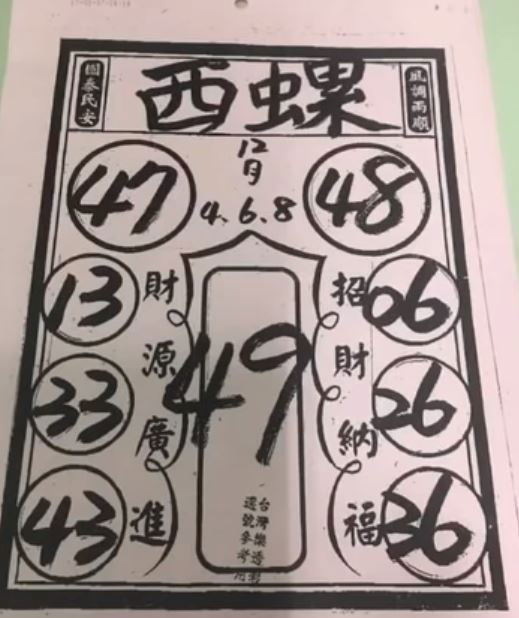 國泰民安
西螺
風調雨順
12月
4、6、8
47
48
13
06
33
26
43
36
49
財源廣進
招財納福
台灣樂透彩
選號參考用